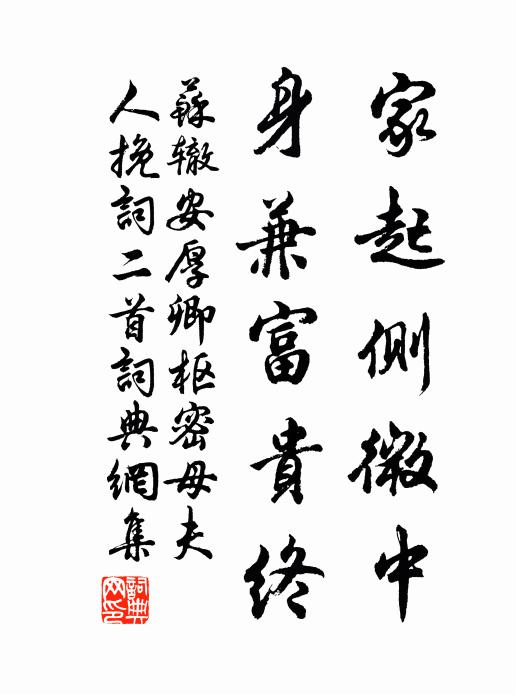 家起側微中
身兼富貴終
蘇辙安厚卿枢密母夫
人挽詞二首詞典網集
詞典网印